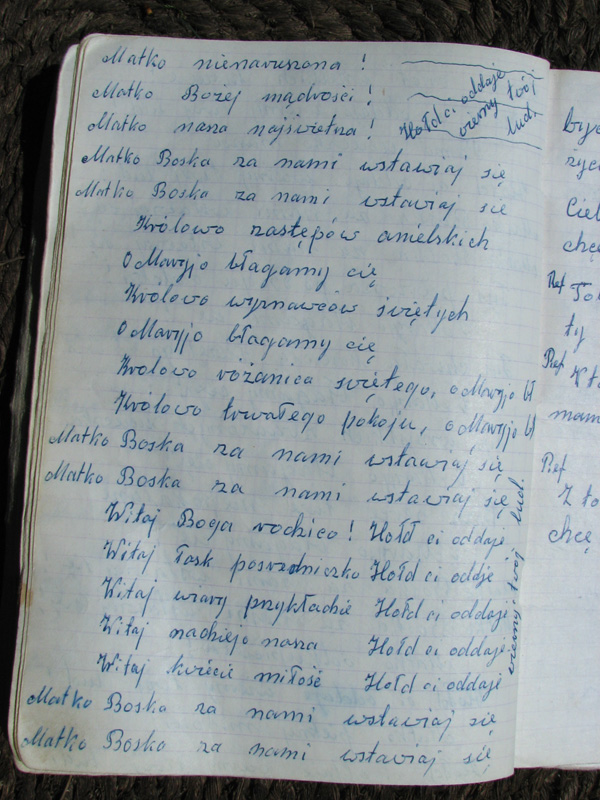 Matko nienaruszona !
Matko Bożej mądrości !
Matko nasza najświetsza !
Hołd ci oddaje
wierny twój
lud.
Matko Boska za nami wstawiaj się
Matko Boska za nami wstawiaj się
Królowo zastępów anielskich
O Maryjo błagamy cię
Królowo wyznawców świętych
O Maryjo błagamy cię
Królowo różańca świętego, o Maryjo bł
Królowo trwałego pokoju, o Maryjo bł
Matko Boska za nami wstawiaj się
Matko Boska za nami wstawiaj się
Witaj Boga rodzico ! Hołd ci oddaje
Witaj łask posrzdniczko Hołd ci oddje
Witaj wiary przykładzie Hołd ci oddaje
Witaj nadziejo nasza Hołd ci oddaje
Witaj kwiecie miłość Hołd ci oddaje
wierny twój lud.
Matko Boska za nami wstawiaj się
Matko Boska za nami wstawiaj się
być
życ
chcę
Ref
ty
Ref Z to
mam
Ref
Z to
chcę